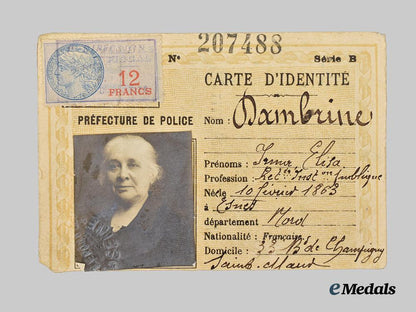 12
FRANCS
Nº 207488
Série B
CARTE D'IDENTITÉ
PRÉFECTURE DE POLICE
Nom : Dambrine
Prénoms : Irma Elisa
Profession
Née le 10 février 1863
à
département Nord
Nationalité : Française
Domicile : 33 Bd de Champigny
Saint-Maur
eMedals